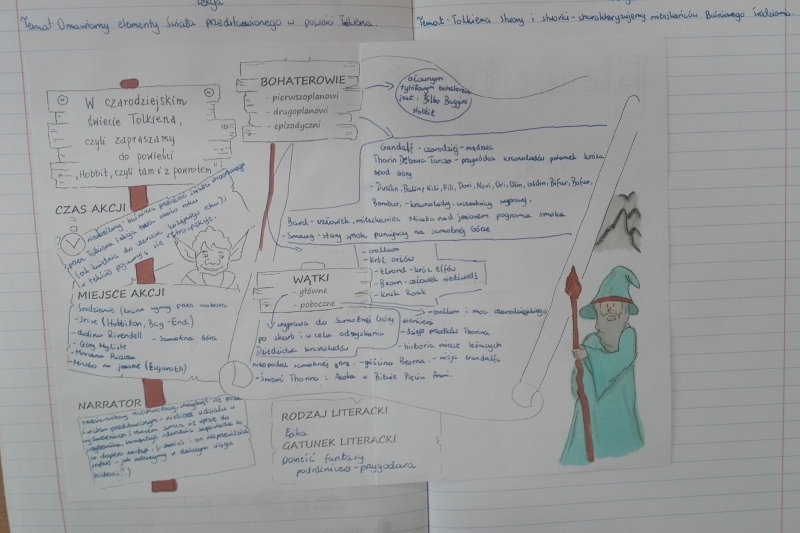 Lekcja
Temat: Omawiamy elementy świata przedstawionego w powieści Tolkiena.
Temat: Tolkiena stwory i stworki - charakteryzujemy mieszkańców Baśniowego Śródziemia.
W czarodziejskim
świecie Tolkiena,
czyli zapraszamy
do powieści
„Hobbit, czyli tam i z powrotem"!
BOHATEROWIE
- pierwszoplanowi
- drugoplanowi
- epizodyczni
Głównym
tytułowym bohaterem
jest: Bilbo Baggins
Hobbit
Gandalf - czarodziej - mędrzec
Thorin Dębowa Tarcza - przywódca krasnoludów, potomek króla
spod Góry
- Dwalin, Balin, Kili, Fili, Dori, Nori, Ori, Oin, Gloin, Bifur, Bofur,
Bombur, - krasnoludy, uczestnicy wyprawy,
Bard - człowiek, mieszkaniec Miasta nad jeziorem pogromca smoka
- Smaug - stary smok panujący na samotnej Górze
- Gollum
- Król orłów
- Elrond - król elfów
- Beorn - człowiek niedźwiedź
- Kruk Roak
CZAS AKCJI
przez Tolkiena (akcja trwa około roku
(od kwietnia do czerwca kolejnego roku);
MIEJSCE AKCJI
Śródziemie (kraina wymyślona przez autora
- Shire (Hobbiton, Bag-End)
- dolina Rivendell - Samotna Góra
- Góry Mgliste
- Mroczna Puszcza
- Miasto na jeziorze (Esgaroth)
WĄTKI
- główne
- poboczne
wyprawa do Samotnej Góry
po skarb i w celu odzyskania
Dziedzictwa krasnoludów
- Gollum i moc czarodziejskiego
pierścienia
- dzieje przodków Thorina
- historia miast leżących
nieopodal samotnej góry, - gościna Beorna, - misja Gandalfa
- śmierć Thorina i Azoga w Bitwie Pięciu Armii.
NARRATOR
RODZAJ LITERACKI
Epika
GATUNEK LITERACKI
powieść fantasy
podróżniczo - przygodowa